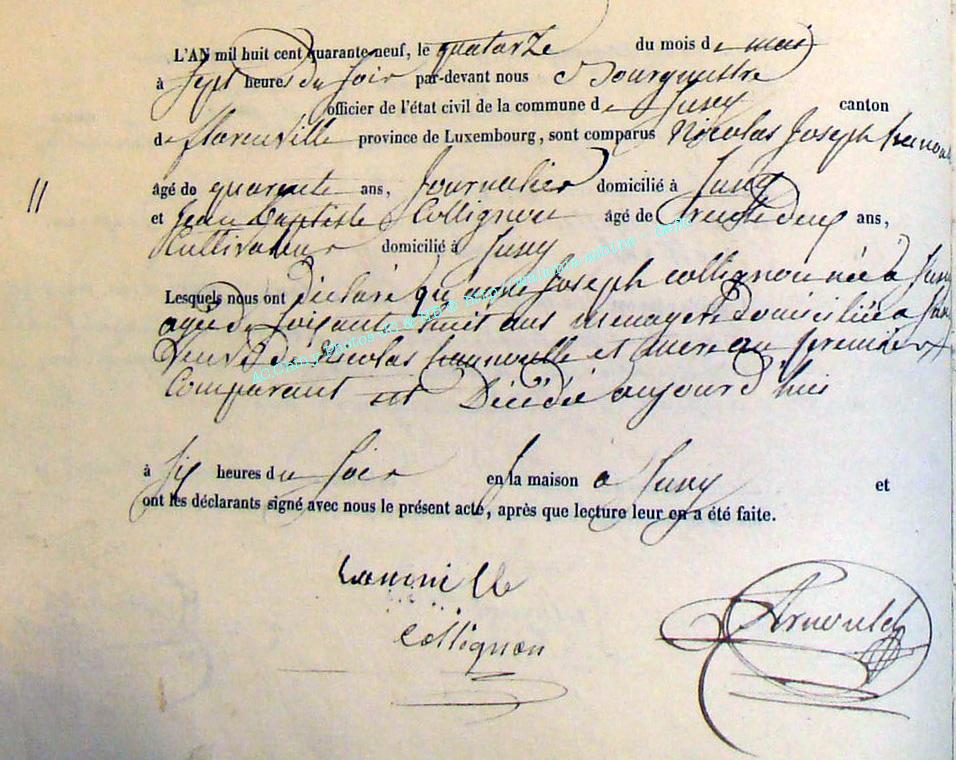 L'AN mil huit cent quarante-neuf, le quatorze du mois de mai
à sept heures du soir par-devant nous Bourguestre
officier de l'état civil de la commune de Suxy canton
de florenville province de Luxembourg, sont comparus Nicolas Joseph
âgé de quarante ans, Journalier domicilié à Suxy
et Jean Baptiste Collignon âgé de trente deux ans,
Cultivateur domicilié à Suxy
Lesquels nous ont déclaré qu'anne Joseph collignon née à Suxy
agée de soisante huit ans menagere domiciliée à Suxy
Veuve de Nicolas et mere au premier
Comparant est Décédée aujourd'hui
à six heures du soir en la maison à Suxy et
ont les déclarants signé avec nous le présent acte, après que lecture leur en a été faite.
Collignon
Arnould